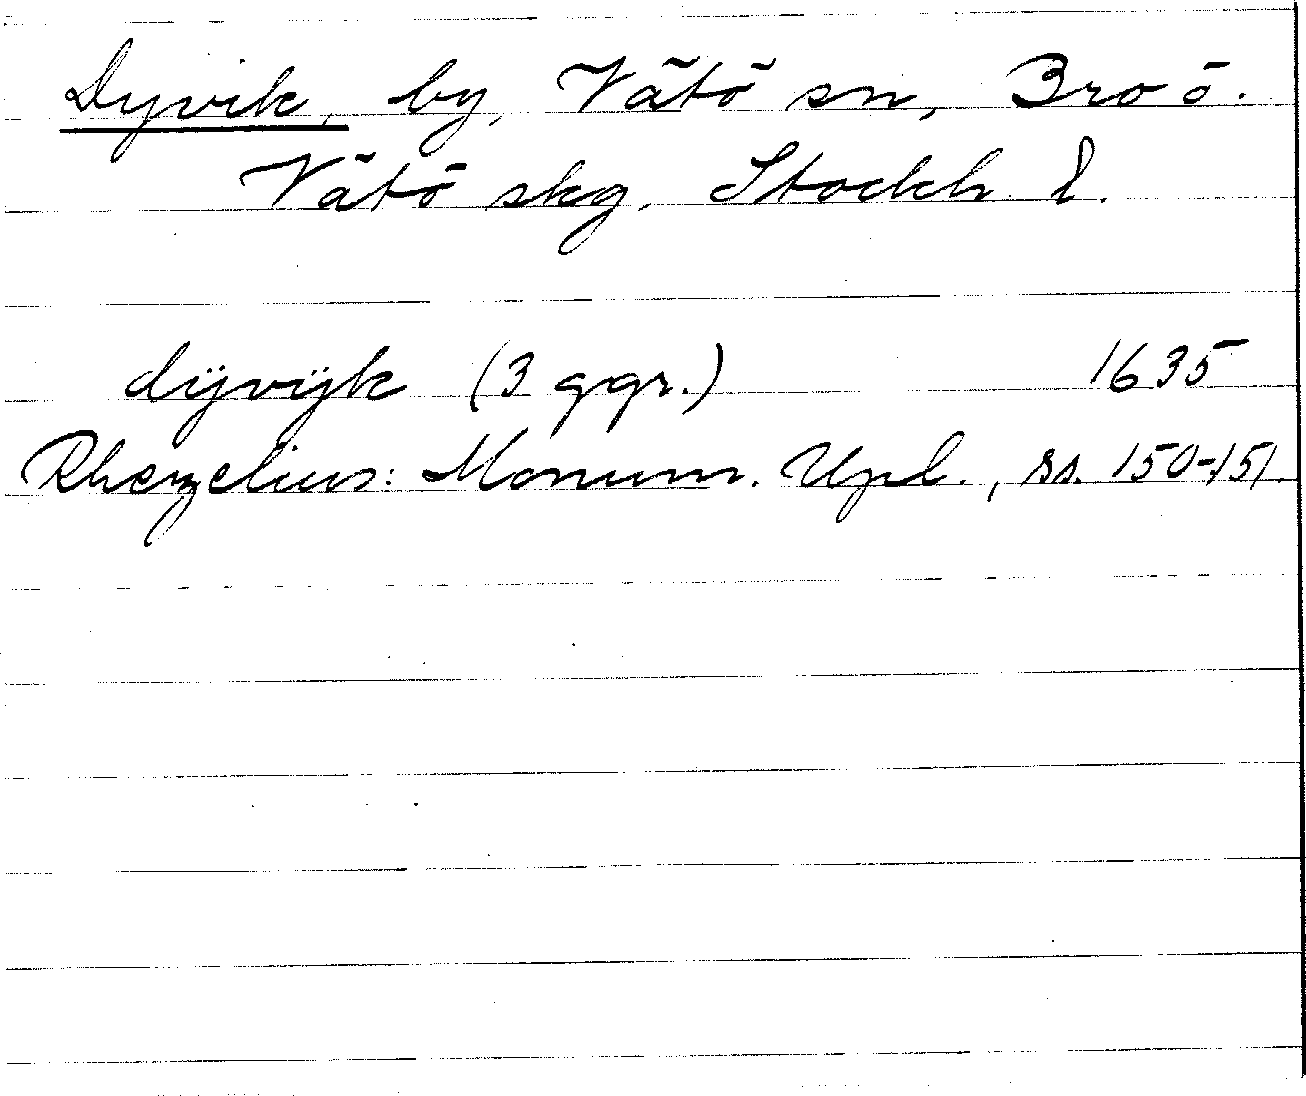 Dyvik, by, Vätö sn, Bro ö.
Vätö skg, Stockh l.
dÿvÿk (3 ggr.) 1635
Rhezelius: Monum. Upl., ss. 150-151.